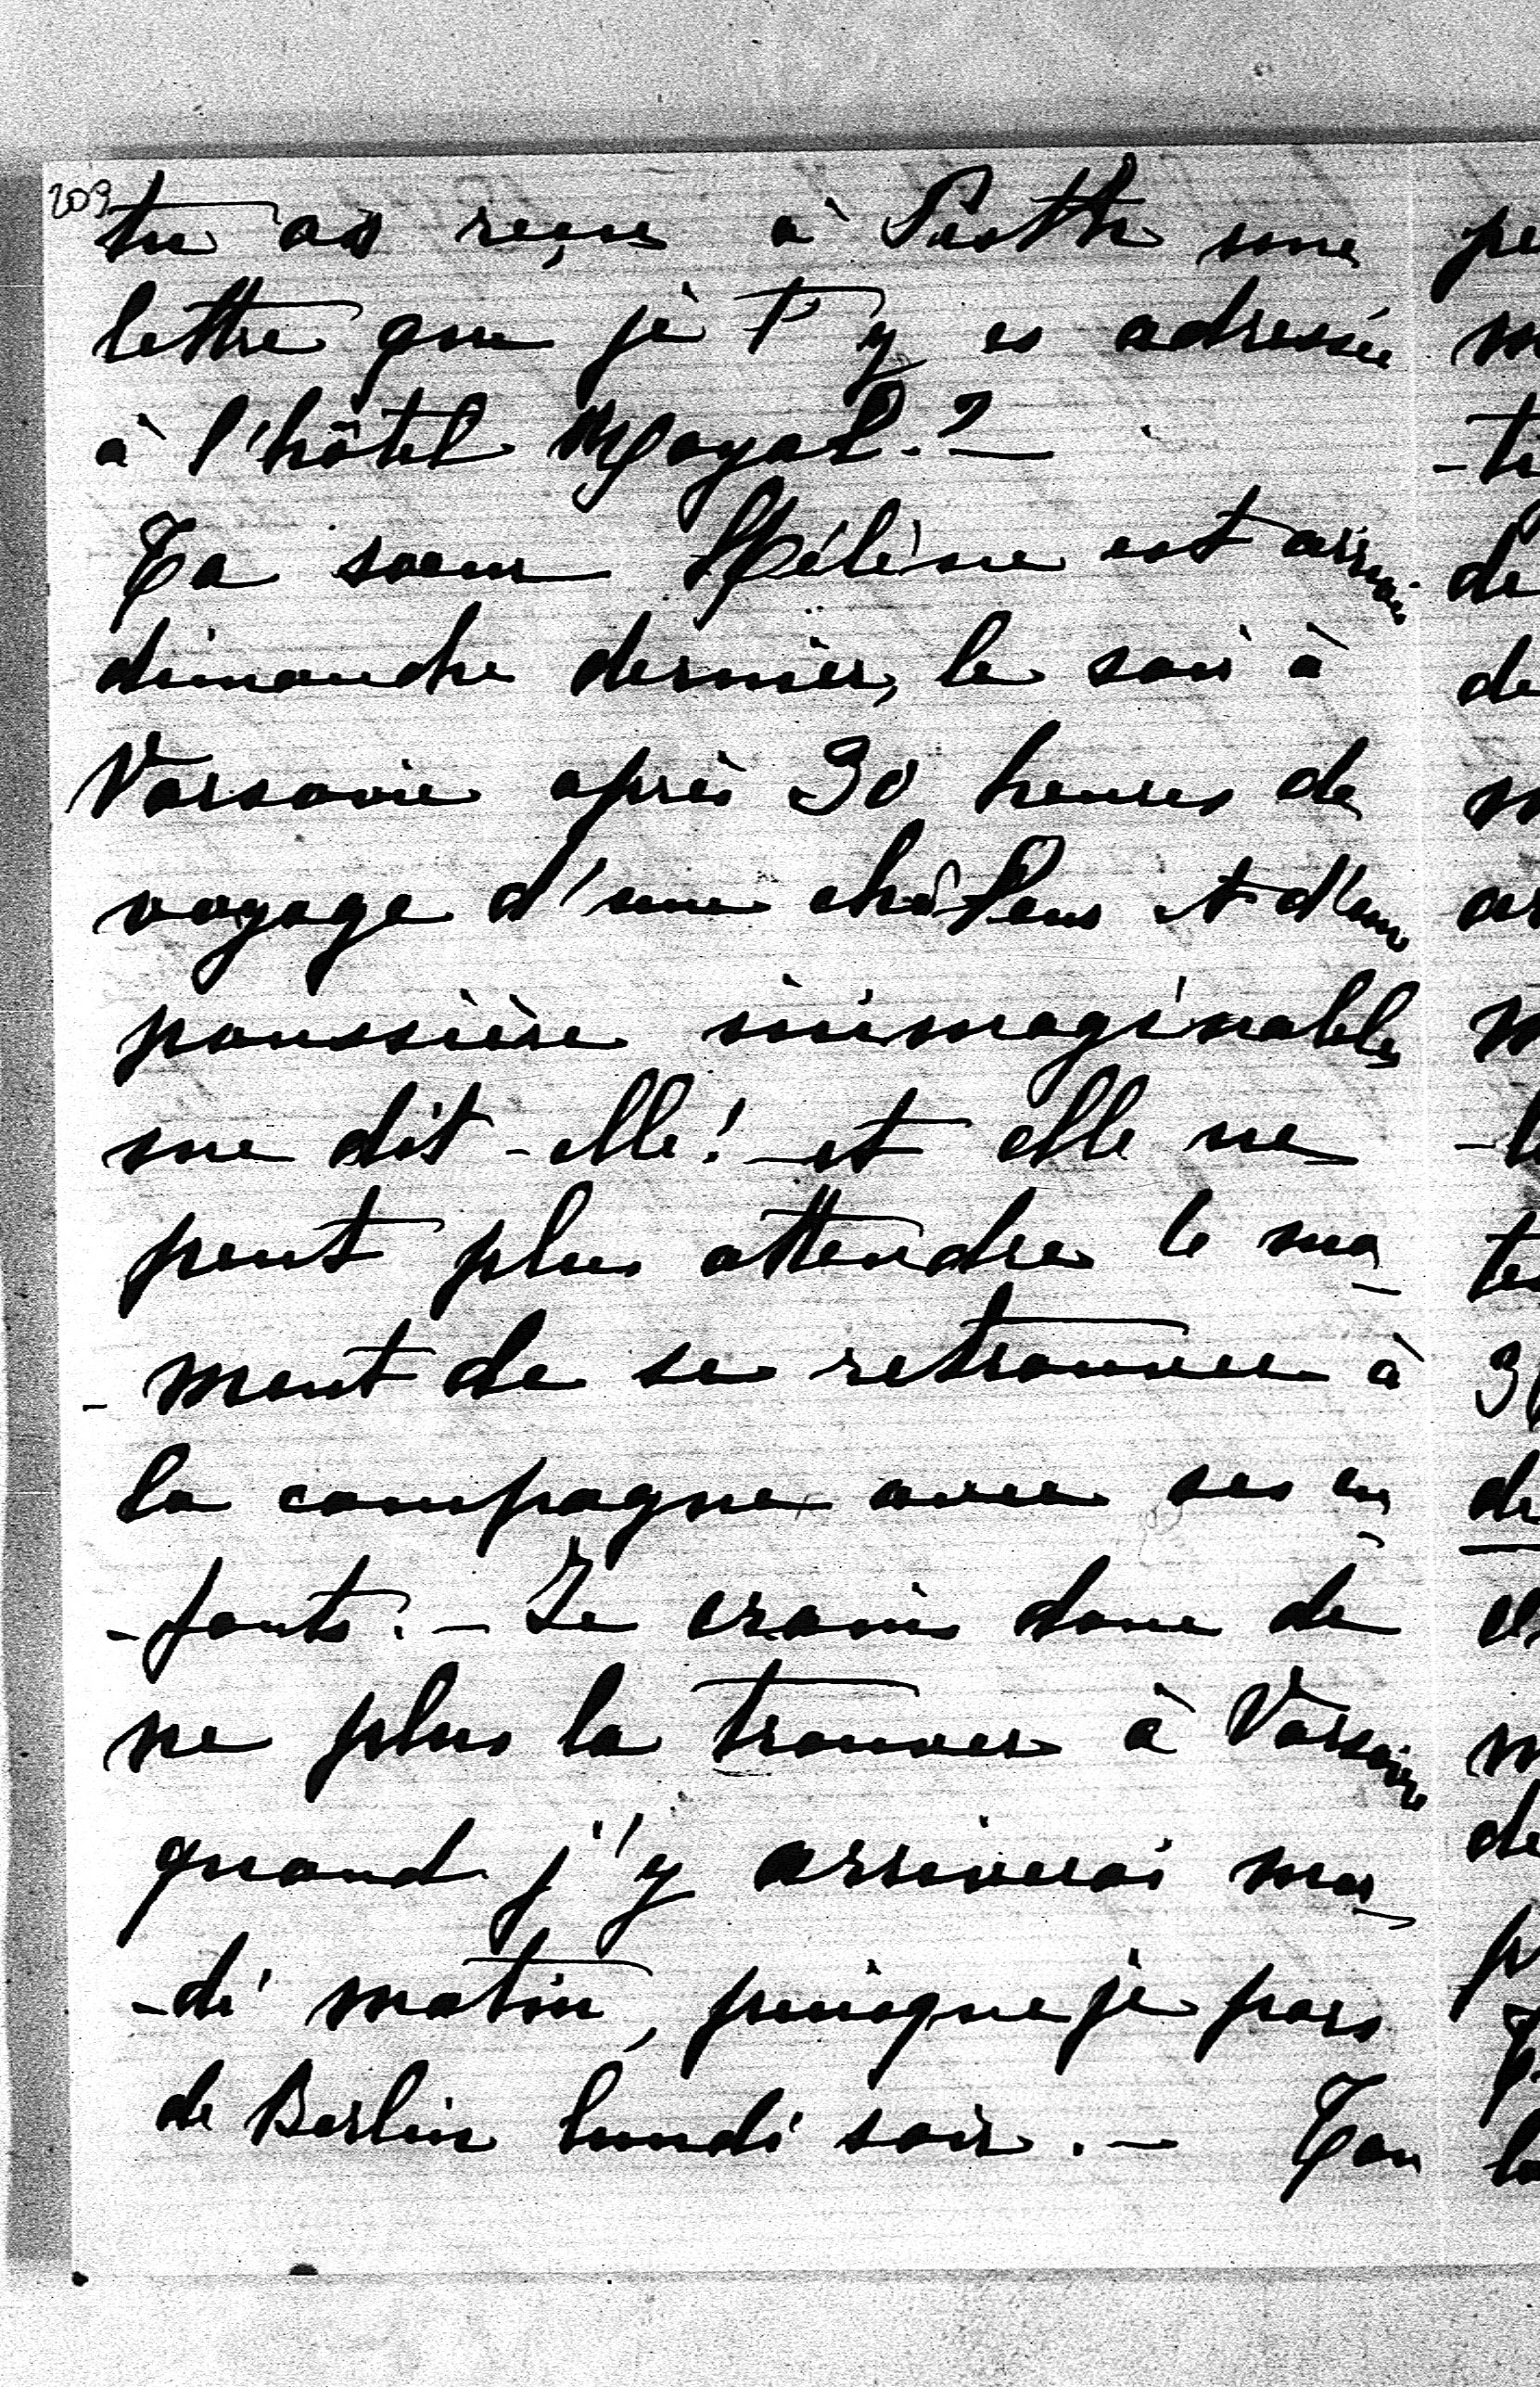 209
tu as reçue à Pesth une
lettre que je t'y ai adressée
à l'hôtel Royal.? —
Ta sœur Hélène est arrivée
dimanche dernier, le soir à
Varsovie après 30 heures de
voyage d'une chaleur et d'une
poussière inimaginables
me dit-elle! et elle ne
peut plus attendre le mo-
-ment de se retrouver à
la campagne avec ses en-
-fants. — Je crains donc de
ne plus la trouver à Varsovie
quand j'y arriverai mar-
-di matin, puisque je pars
de Berlin lundi soir. — Ton